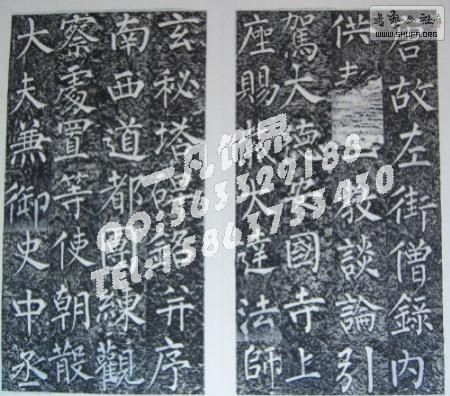 唐故左街僧錄內
供三教談論引
駕大德安國寺上
座賜紫大達法師
玄秘塔碑銘并序
南西道都團練觀
察處置等使朝散
大夫兼御史中丞
一凡饰界
QQ:363329188
TEL:15863753430
WWW.SHUFA.ORG